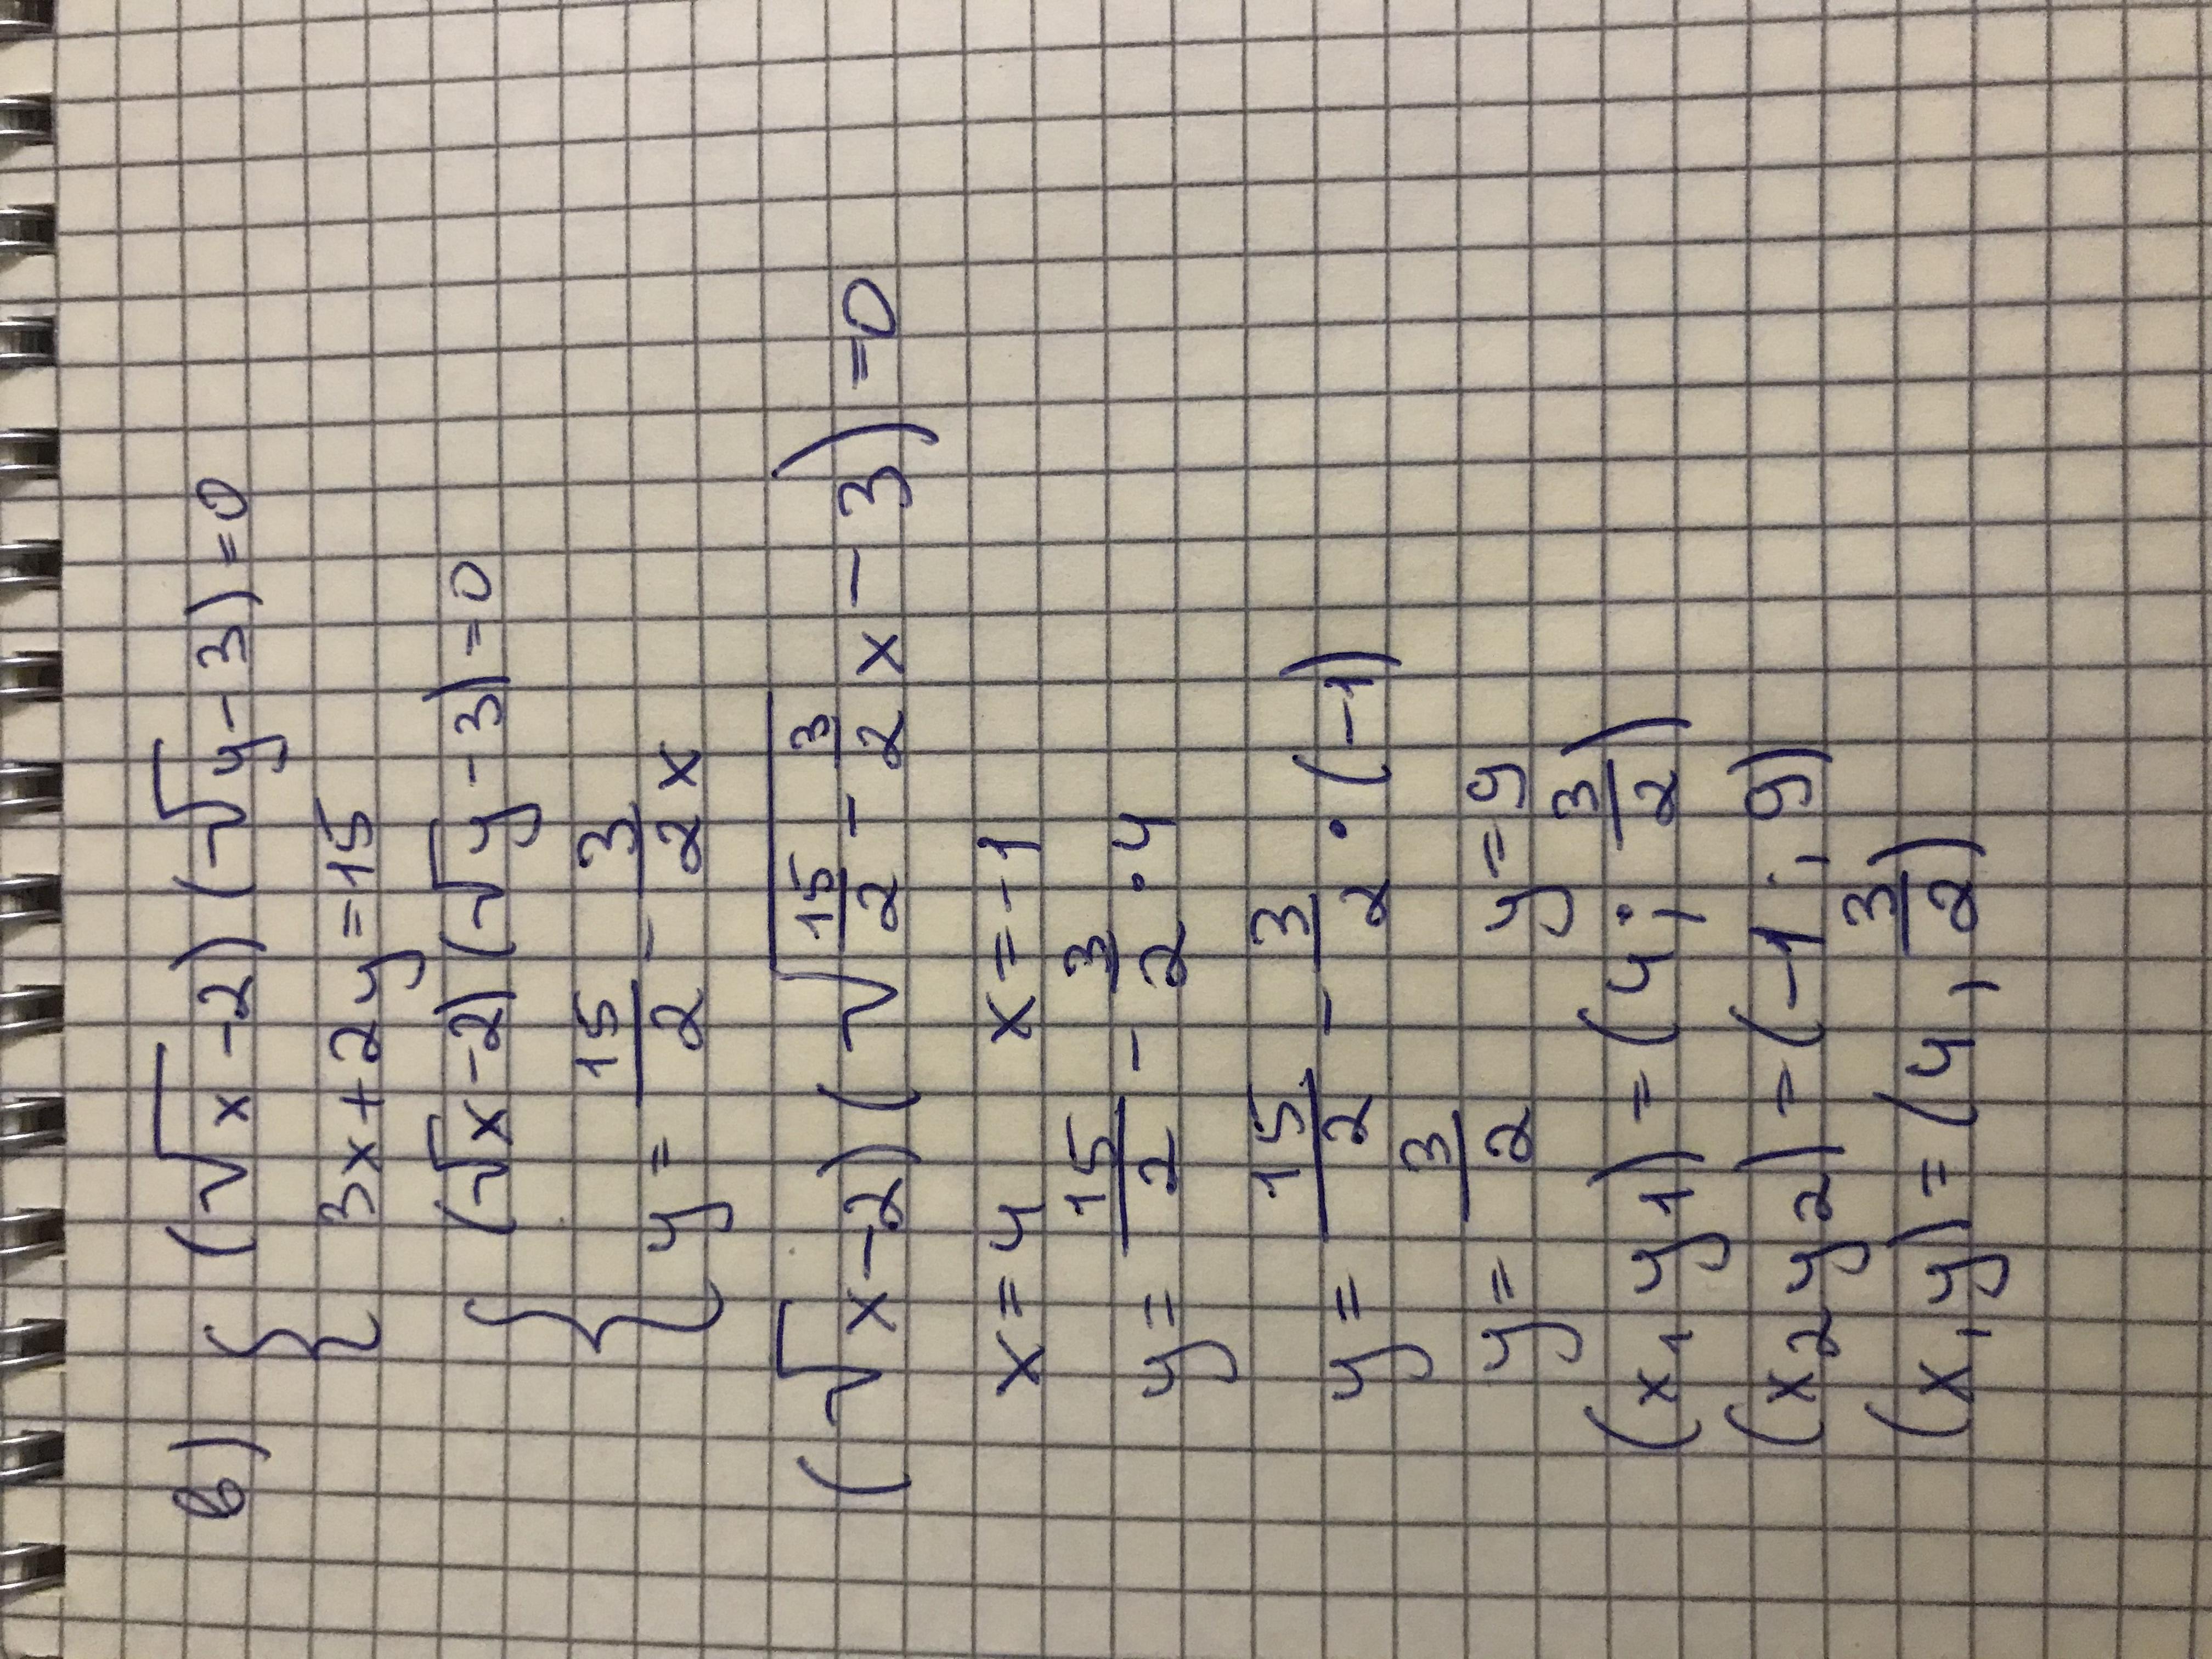 в) { (√x-2)(√y-3)=0
3x+2y=15
{ (√x-2)(√y-3)=0
y = 15/2 - 3/2 x
(√x-2)(√15/2 - 3/2 x - 3) =0
x=4 x=-1
y= 15/2 - 3/2 · 4
y= 15/2 - 3/2 · (-1)
y= 3/2 y=9
(x1 y1) = (4; 3/2)
(x2 y2) = (-1; 9)
(x, y) = (4, 3/2)